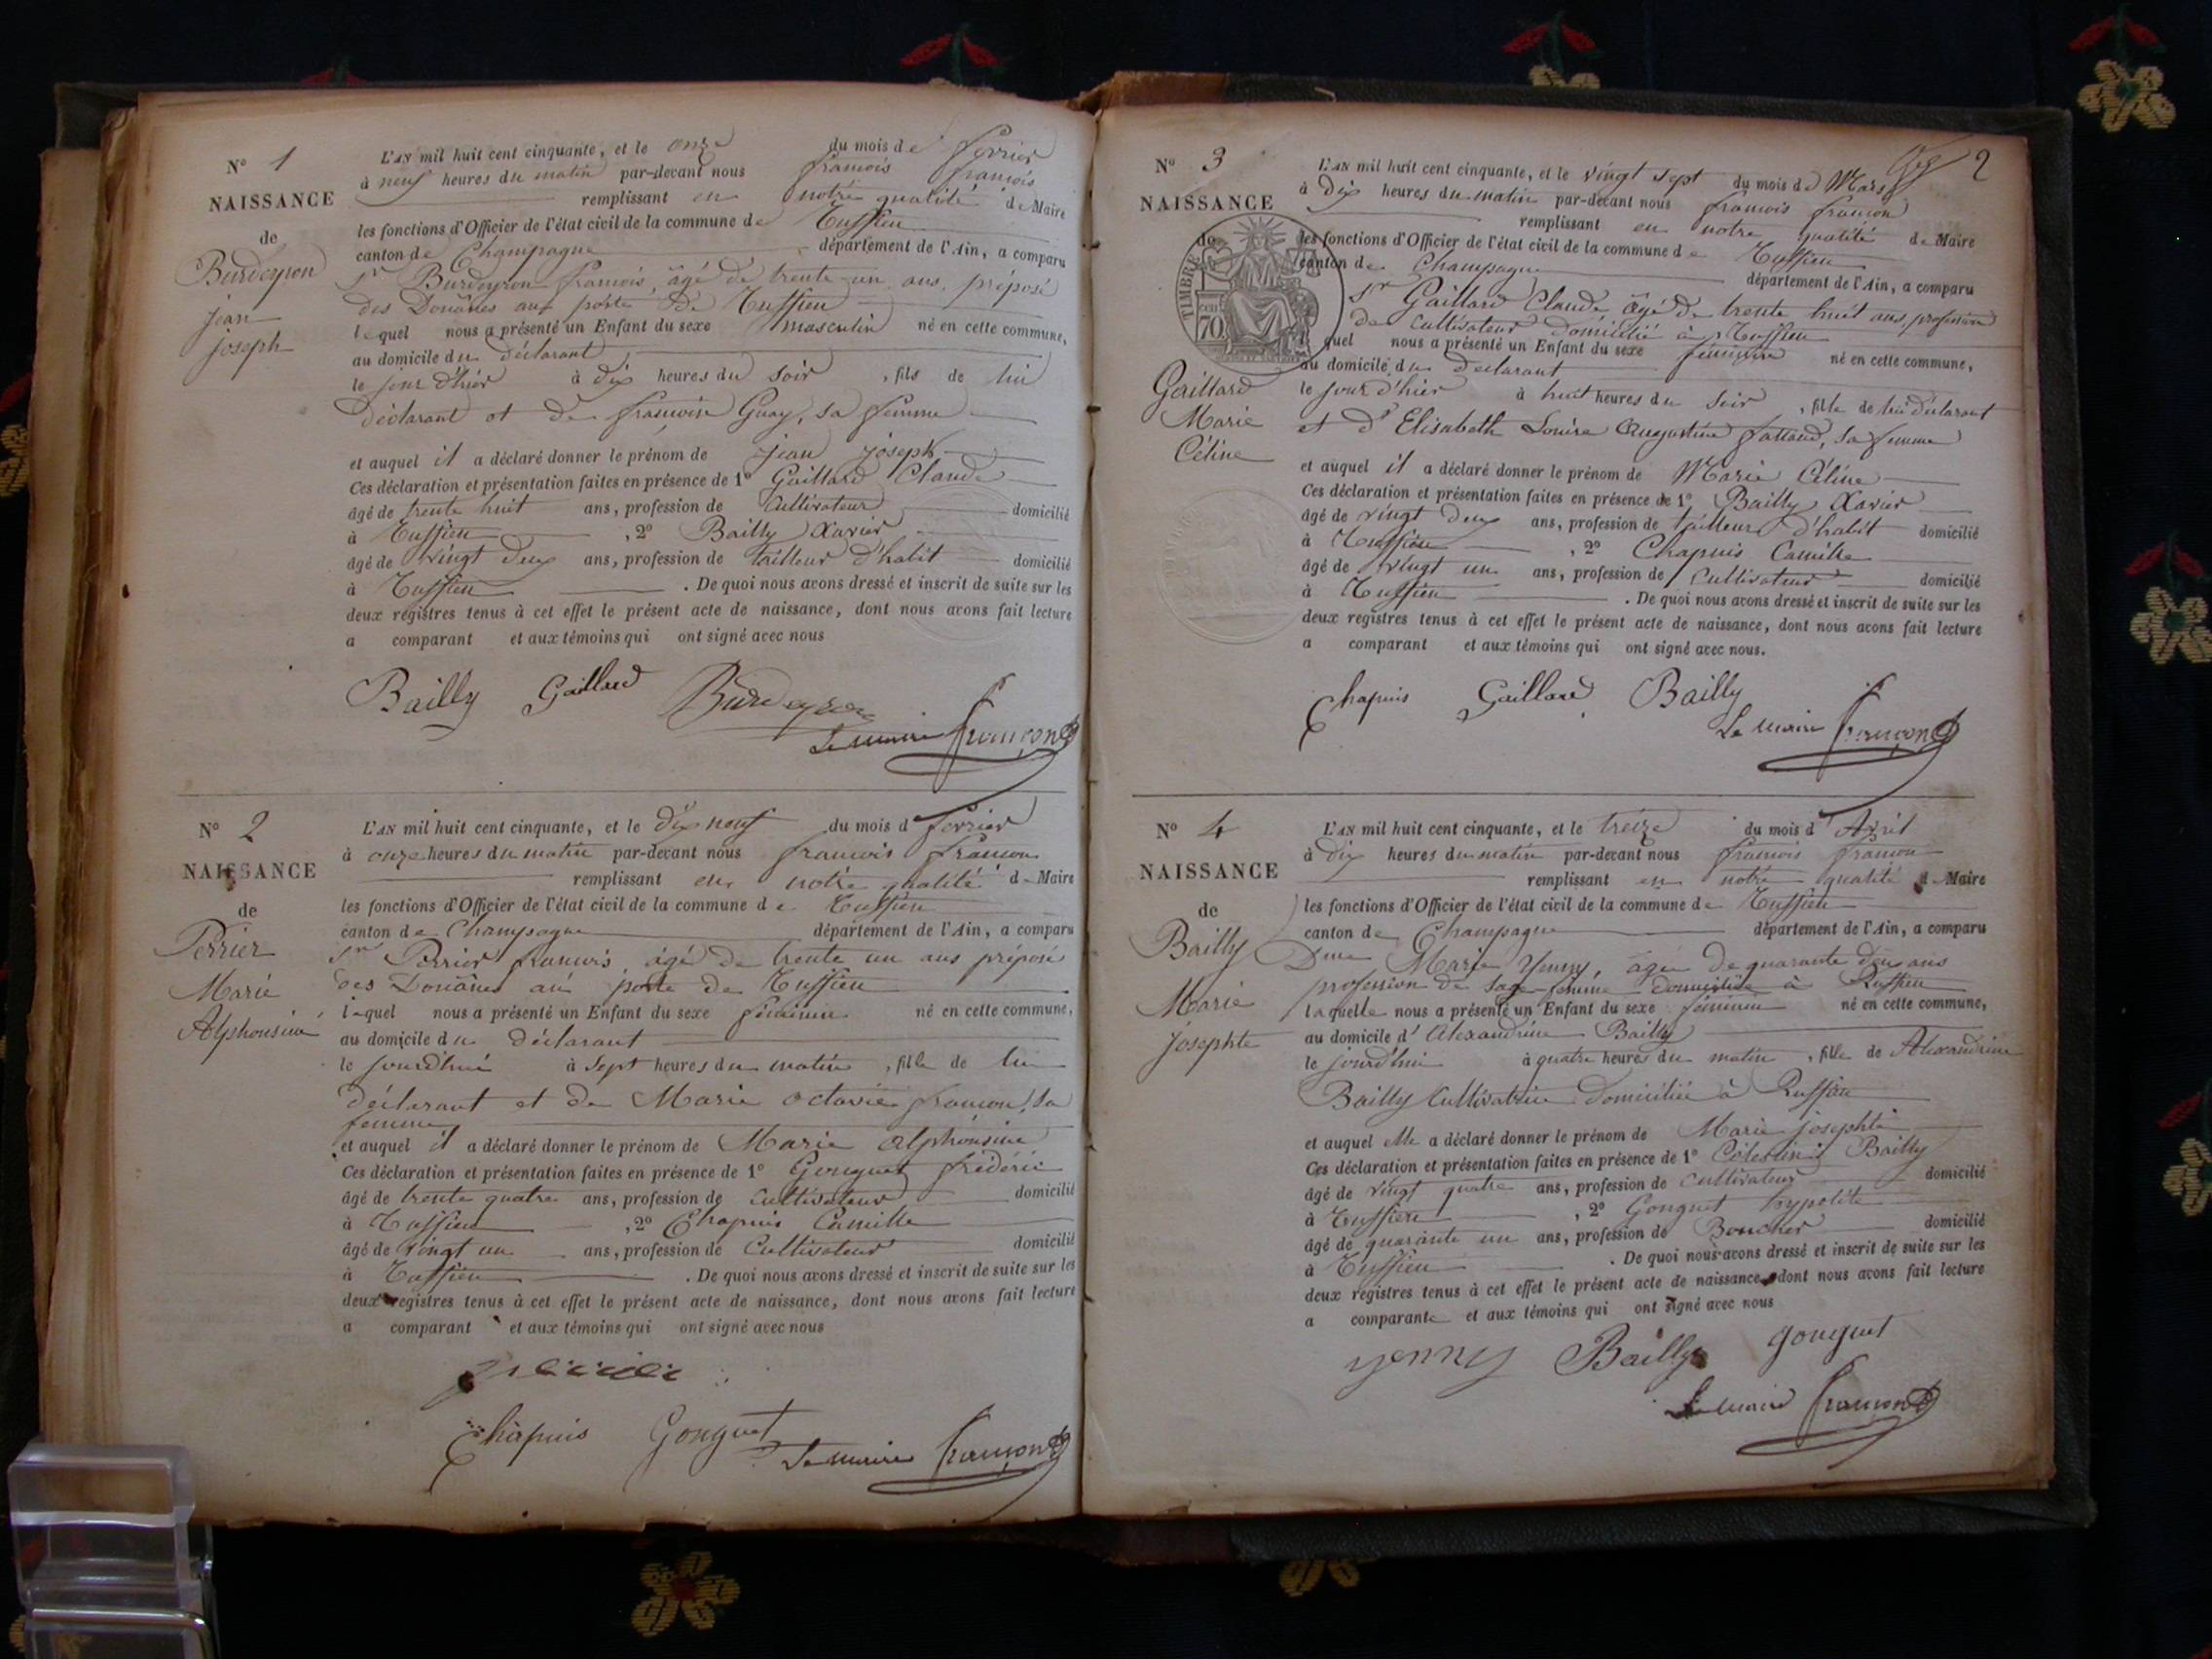 N° 1
NAISSANCE
de
Burdeyron
jean
joseph
L'AN mil huit cent cinquante, et le onze du mois de fevrier
à neuf heures du matin par-devant nous françois
remplissant en notre qualité de Maire
les fonctions d'Officier de l'état civil de la commune de Ruffieu
canton de Champagne département de l'Ain, a comparu
Sr Burdeyron françois, âgé de trente un ans, préposé
des Douanes au poste de Ruffieu
lequel nous a présenté un Enfant du sexe masculin né en cette commune,
au domicile du déclarant
le jour d'hier à dix heures du soir, fils de lui
déclarant et de françoise Guay, sa femme
et auquel il a déclaré donner le prénom de jean joseph
Ces déclaration et présentation faites en présence de 1° Gaillard Claude
âgé de trente huit ans, profession de Cultivateur domicilié
à Ruffieu, 2° Bailly Xavier
âgé de vingt deux ans, profession de tailleur d'habit domicilié
à Ruffieu. De quoi nous avons dressé et inscrit de suite sur les
deux registres tenus à cet effet le présent acte de naissance, dont nous avons fait lecture
a comparant et aux témoins qui ont signé avec nous
Bailly Gaillard Burdeyron
Le maire françon
N° 2
NAISSANCE
de
Perrier
Marie
Alphonsine
L'AN mil huit cent cinquante, et le dix neuf du mois d fevrier
à onze heures du matin par-devant nous françois françon
remplissant en notre qualité de Maire
les fonctions d'Officier de l'état civil de la commune de Ruffieu
canton de Champagne département de l'Ain, a comparu
Sr Perrier françois âgé de trente un ans préposé
des Douanes au poste de Ruffieu
lequel nous a présenté un Enfant du sexe féminin né en cette commune,
au domicile du déclarant
le jourd'hui à sept heures du matin, fille de lui
déclarant et de Marie octavie françon, sa
femme
et auquel il a déclaré donner le prénom de Marie alphonsine
Ces déclaration et présentation faites en présence de 1° Gonguet frédéric
âgé de trente quatre ans, profession de cultivateur domicilié
à Ruffieu, 2° Chapuis Camille
âgé de vingt un ans, profession de Cultivateur domicilié
à Ruffieu. De quoi nous avons dressé et inscrit de suite sur les
deux registres tenus à cet effet le présent acte de naissance, dont nous avons fait lecture
a comparant et aux témoins qui ont signé avec nous
perrier
Chapuis Gonguet Le maire françon
2
N° 3
NAISSANCE
de
TIMBRE
70
Gaillard
Marie
Céline
L'AN mil huit cent cinquante, et le vingt sept du mois de Mars
à dix heures du matin par-devant nous françois françon
remplissant en notre qualité de Maire
les fonctions d'Officier de l'état civil de la commune de Ruffieu
canton de Champagne département de l'Ain, a comparu
Sr Gaillard Claude, âgé de trente huit ans, profession
de cultivateur domicilié à Ruffieu
quel nous a présenté un Enfant du sexe féminin né en cette commune,
au domicile du déclarant
le jour d'hier à huit heures du soir, fille de lui déclarant
et d'Elisabeth Louise Augustine, sa femme
et auquel il a déclaré donner le prénom de Marie Céline
Ces déclaration et présentation faites en présence de 1° Bailly Xavier
âgé de vingt deux ans, profession de tailleur d'habit domicilié
à Ruffieu, 2° Chapuis Camille
âgé de vingt un ans, profession de Cultivateur domicilié
à Ruffieu. De quoi nous avons dressé et inscrit de suite sur les
deux registres tenus à cet effet le présent acte de naissance, dont nous avons fait lecture
a comparant et aux témoins qui ont signé avec nous.
Chapuis Gaillard Bailly
Le maire françon
N° 4
NAISSANCE
de
Bailly
Marie
josephte
L'AN mil huit cent cinquante, et le treize du mois d'Avril
à dix heures du matin par-devant nous françois françon
remplissant en notre qualité de Maire
les fonctions d'Officier de l'état civil de la commune de Ruffieu
canton de Champagne département de l'Ain, a comparu
Dme Marie Yenny, âgée de quarante deux ans
profession de sage-femme domiciliée à Ruffieu
laquelle nous a présenté un Enfant du sexe féminin né en cette commune,
au domicile d'Alexandrine Bailly
le jourd'hui à quatre heures du matin, fille de Alexandrine
Bailly Cultivatrice domiciliée à Ruffieu
et auquel elle a déclaré donner le prénom de Marie josephte
Ces déclaration et présentation faites en présence de 1° Célestin Bailly
âgé de vingt quatre ans, profession de cultivateur domicilié
à Ruffieu, 2° Gonguet hypolite
âgé de quarante un ans, profession de Boucher domicilié
à Ruffieu. De quoi nous avons dressé et inscrit de suite sur les
deux registres tenus à cet effet le présent acte de naissance, dont nous avons fait lecture
a comparante et aux témoins qui ont signé avec nous
yenny Bailly gonguet
Le maire françon